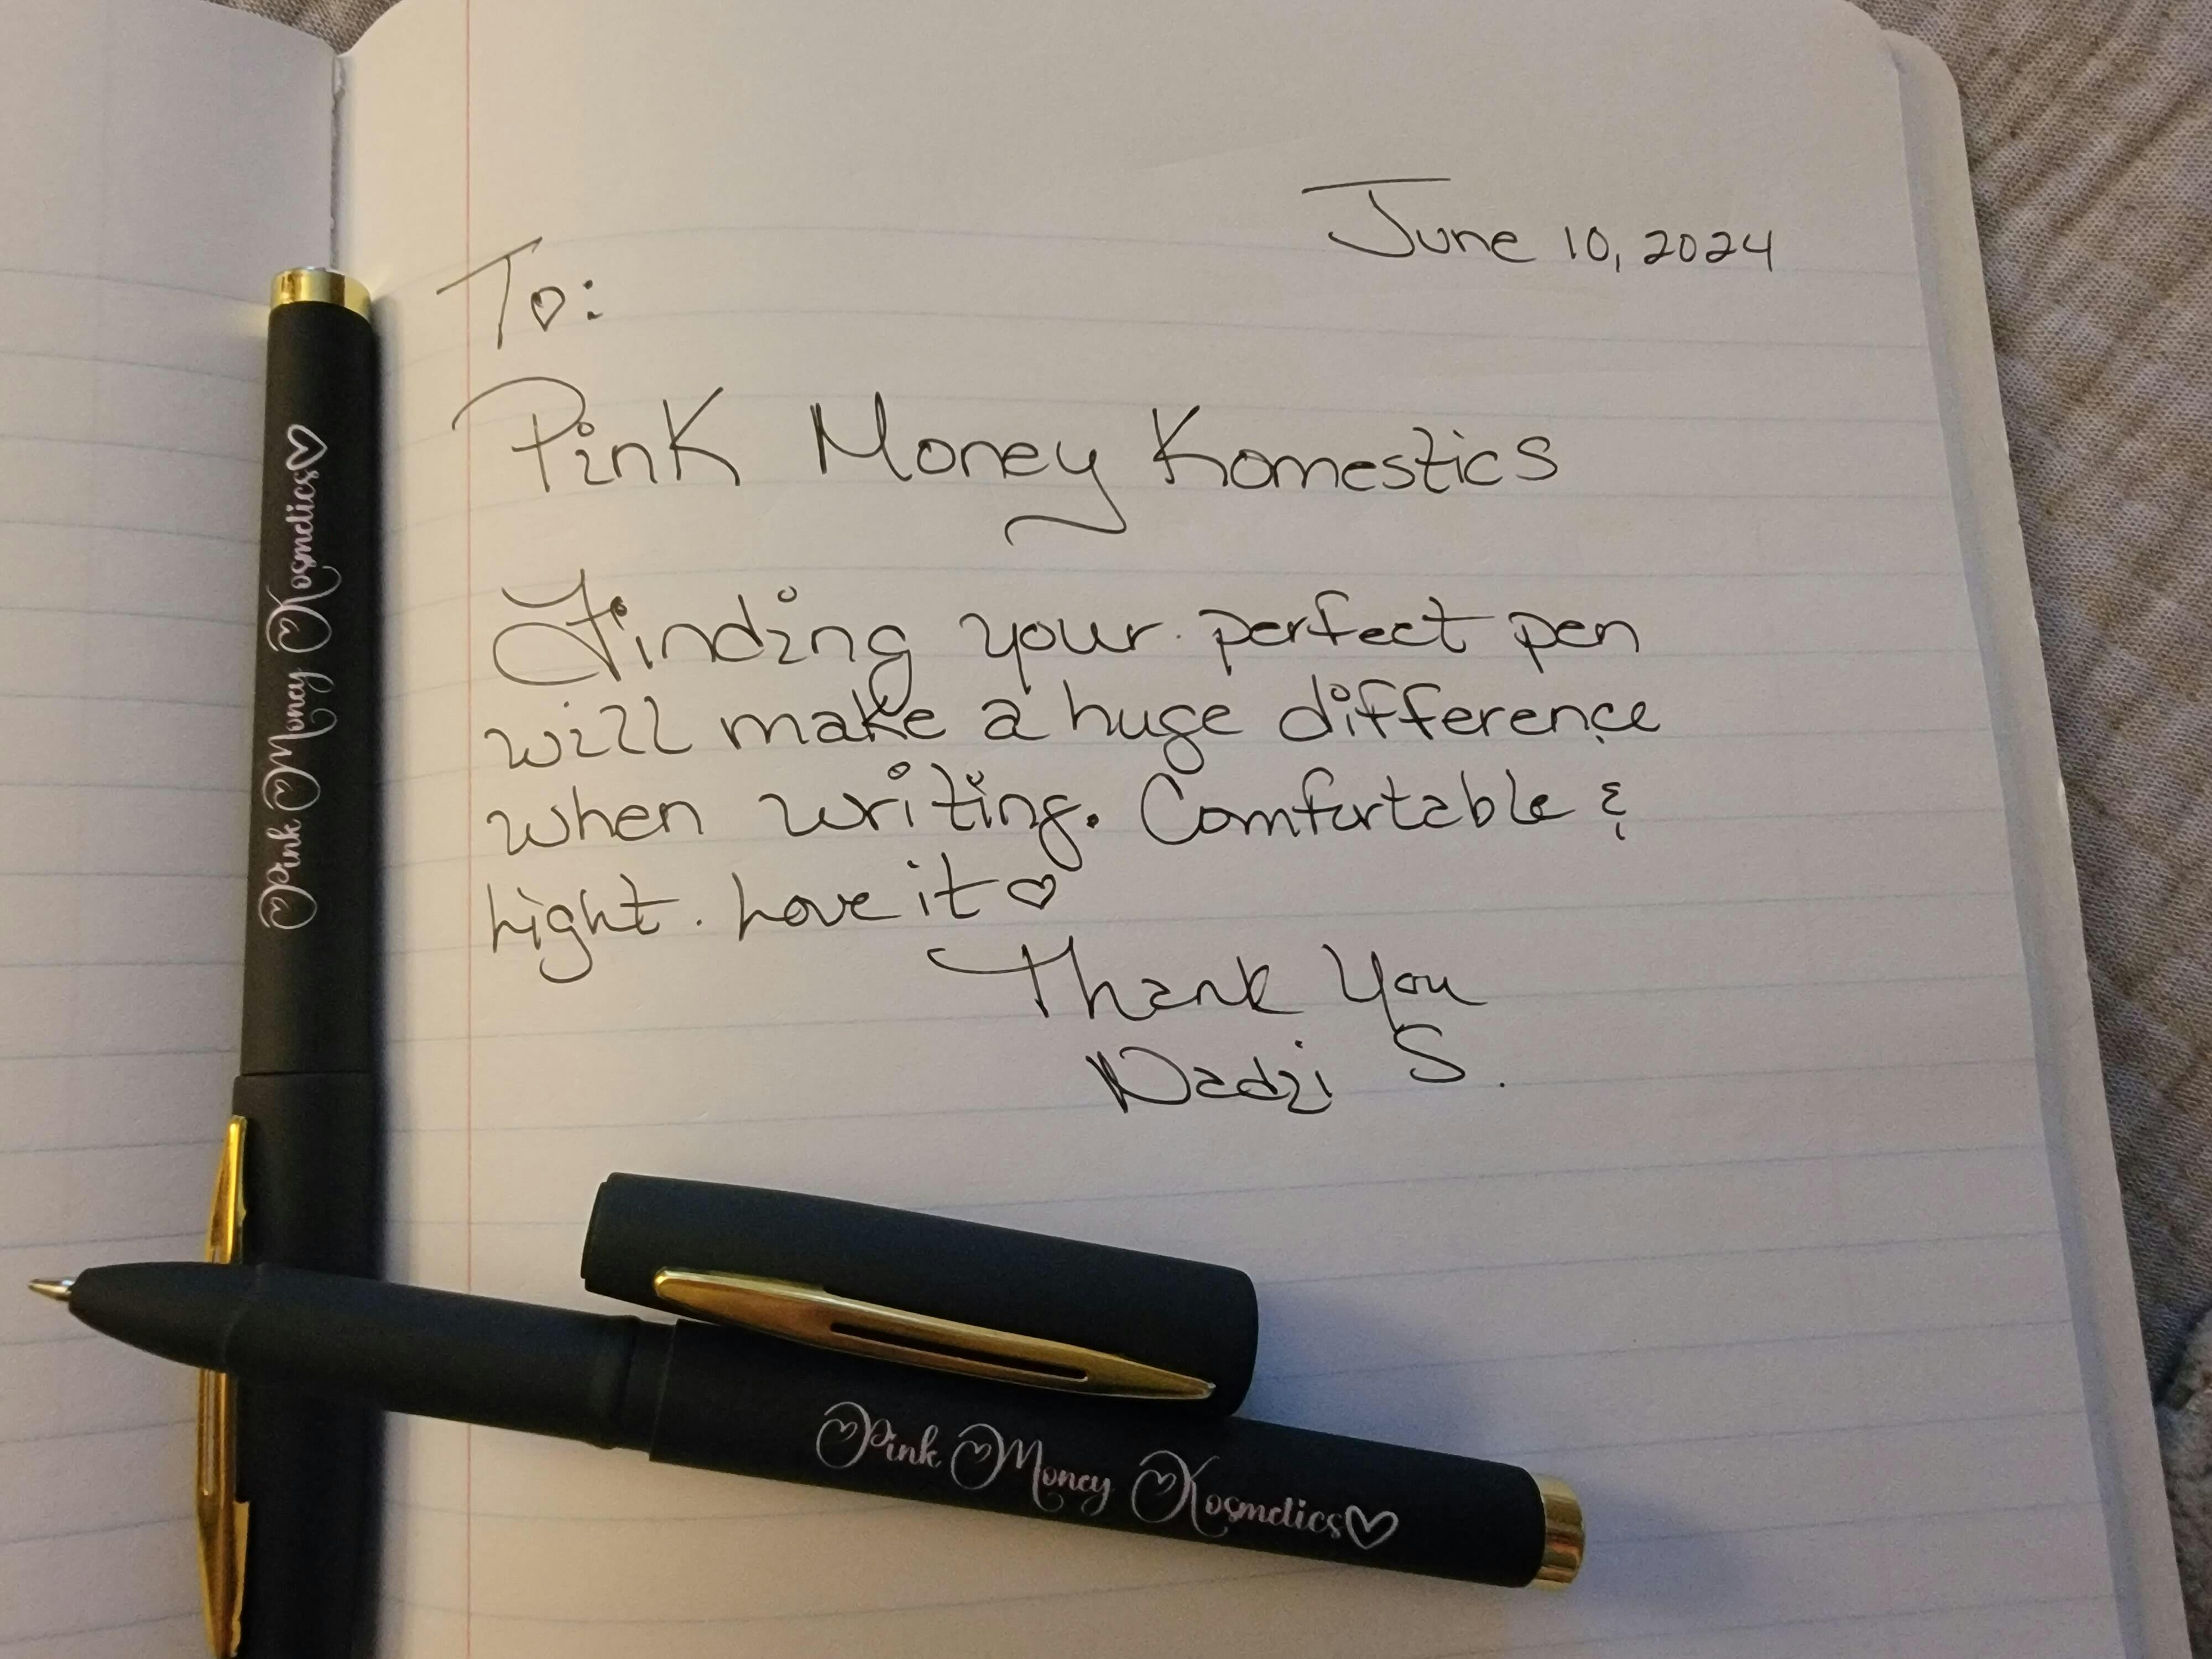 June 10, 2024
To:
Pink Money Komestics
Finding your perfect pen
will make a huge difference
when writing. Comfurtable &
Light. Love it ♡
Thank You
Nadzi S.
Pink Money Kosmetics♡
Pink Money Kosmetics♡